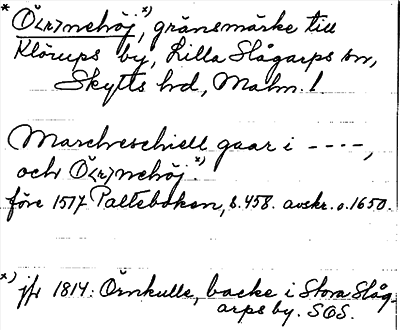 * Ö<r>nehöj *), gränsmärke till
Klörups by, Lilla Slågarps sn,
Skytts hd, Malm. l.
Marckeschiell gaar i ----,
och Ö<r>nehöj *)
före 1517 Palteboken, s. 458. avskr. o. 1650.
*) jfr 1814: Örnkulle, backe i Stora Slåg-
arps by. SOS.